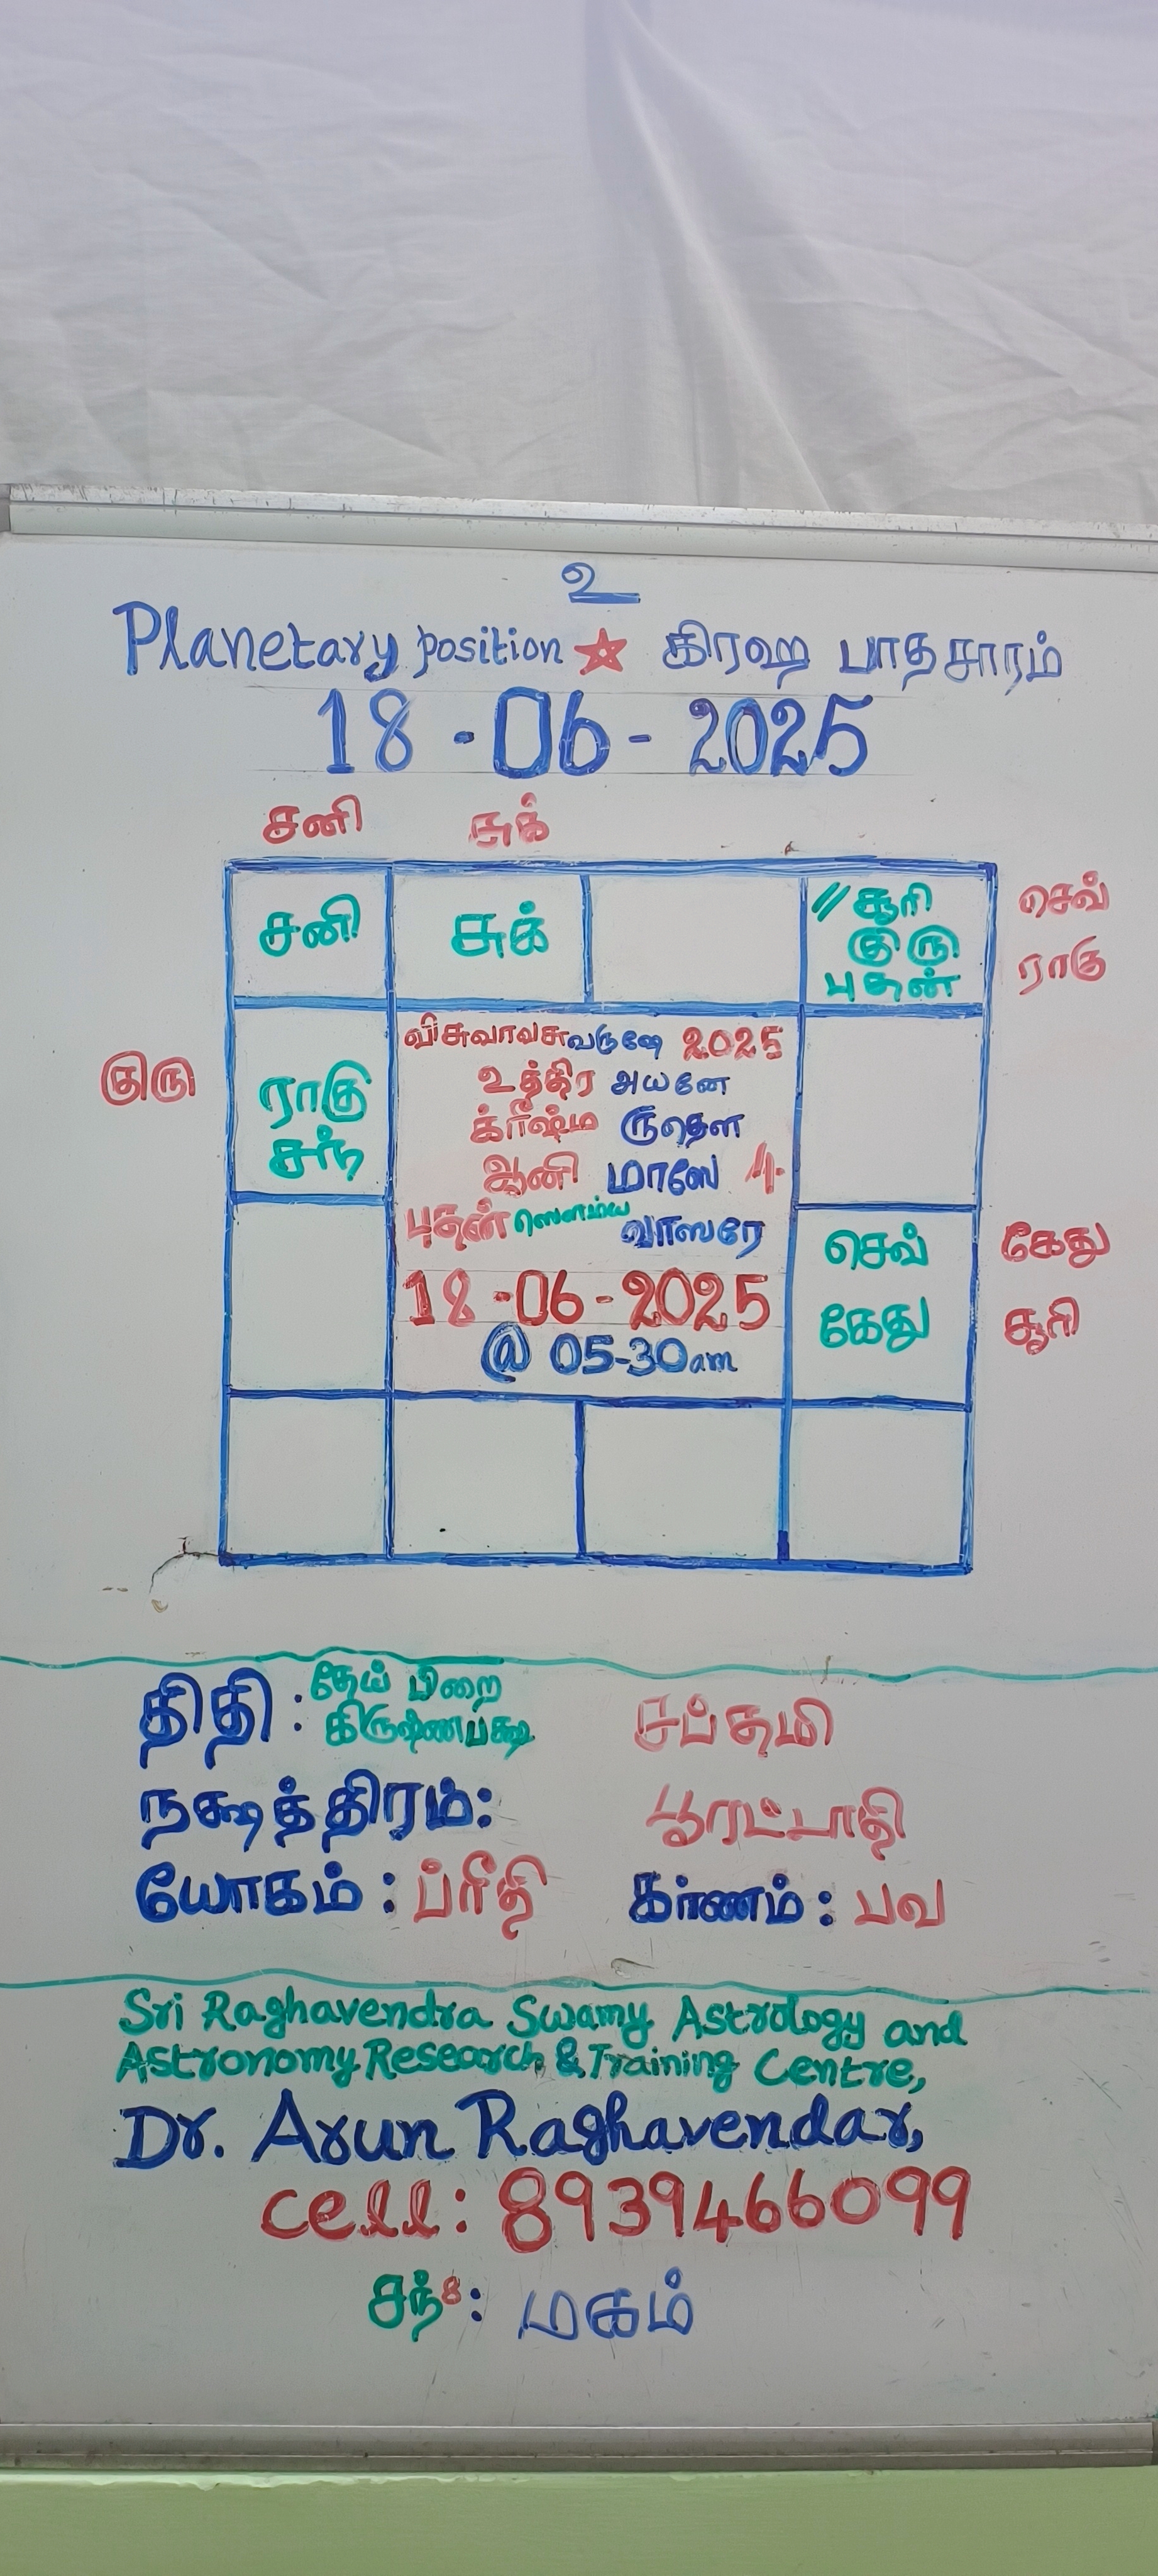 உ
Planetary position ☆ கிரஹ பாதசாரம்
18-06-2025
சனி சுக்
சனி சுக் // சூரி செவ்
குரு ராகு
புதன்
விசுவாவசுவருஷே 2025
உத்திர அயனே
குரு ராகு க்ரீஷ்ம ருதௌ
சந் ஆனி மாஸே 4
புதன் ஸௌம்ய வாஸரே செவ் கேது
18-06-2025 கேது சூரி
@ 05-30am
திதி : தேய் பிறை சப்தமி
கிருஷ்ணபக்ஷ
நக்ஷத்திரம்: பூரட்டாதி
யோகம் : ப்ரீதி கர்ணம் : பவ
Sri Raghavendra Swamy Astrology and
Astronomy Research & Training Centre,
Dr. Arun Raghavendar,
cell: 8939466099
சந் 8 : மகம்